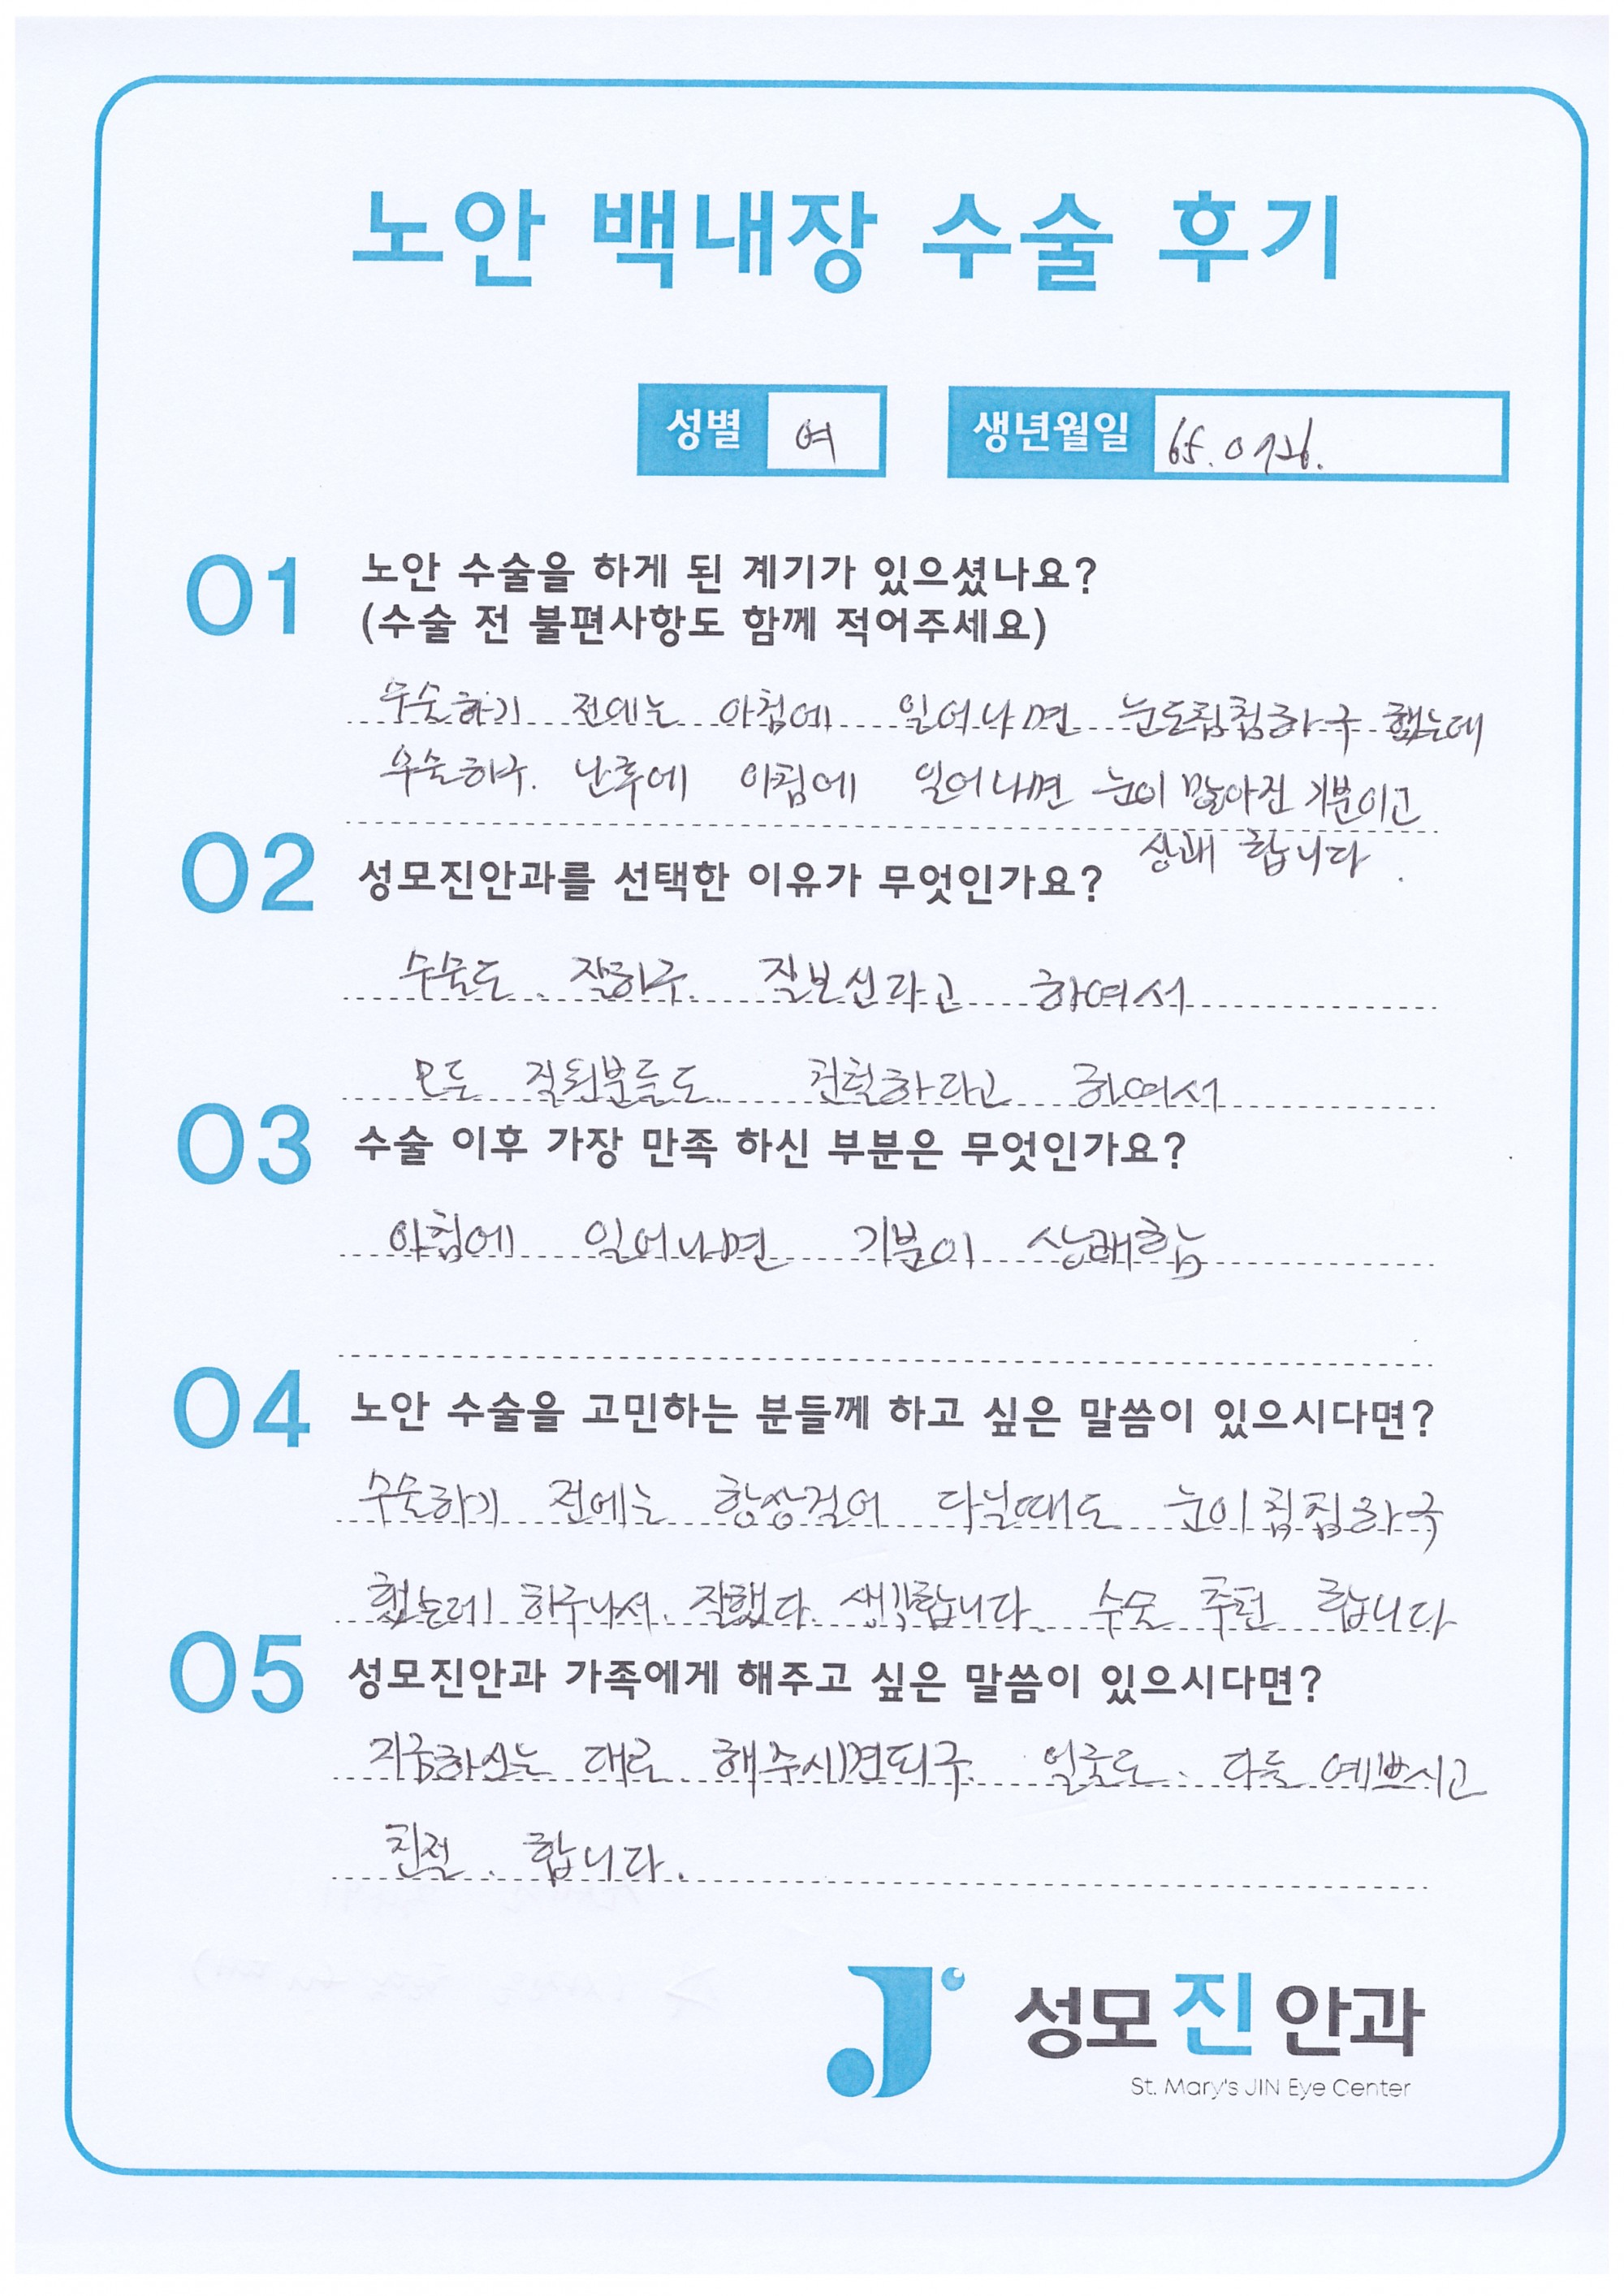 노안 백내장 수술 후기
성별 여 생년월일 65.0726.
01 노안 수술을 하게 된 계기가 있으셨나요?
(수술 전 불편사항도 함께 적어주세요)
수술하기 전에는 아침에 일어나면 눈도침침하구 했는데
수술하구. 난후에 아침에 일어나면 눈이 맑아진 기분이고
상쾌 합니다.
02 성모진안과를 선택한 이유가 무엇인가요?
수술도. 잘하구. 잘보신다고 하여서
모두 잘된분들도. 하라고 하여서
03 수술 이후 가장 만족 하신 부분은 무엇인가요?
아침에 일어나면 기분이 상쾌함
04 노안 수술을 고민하는 분들께 하고 싶은 말씀이 있으시다면?
수술하기 전에는 항상걸어 다닐때도 눈이침침하구
했는데 하구나서. 잘했다. 생각합니다. 수술 추천 합니다
05 성모진안과 가족에게 해주고 싶은 말씀이 있으시다면?
지금하신는 대로. 해주시면되구. 얼굴도. 다들 예쁘시고
친절. 합니다.
성모진안과
St. Mary's JIN Eye Center